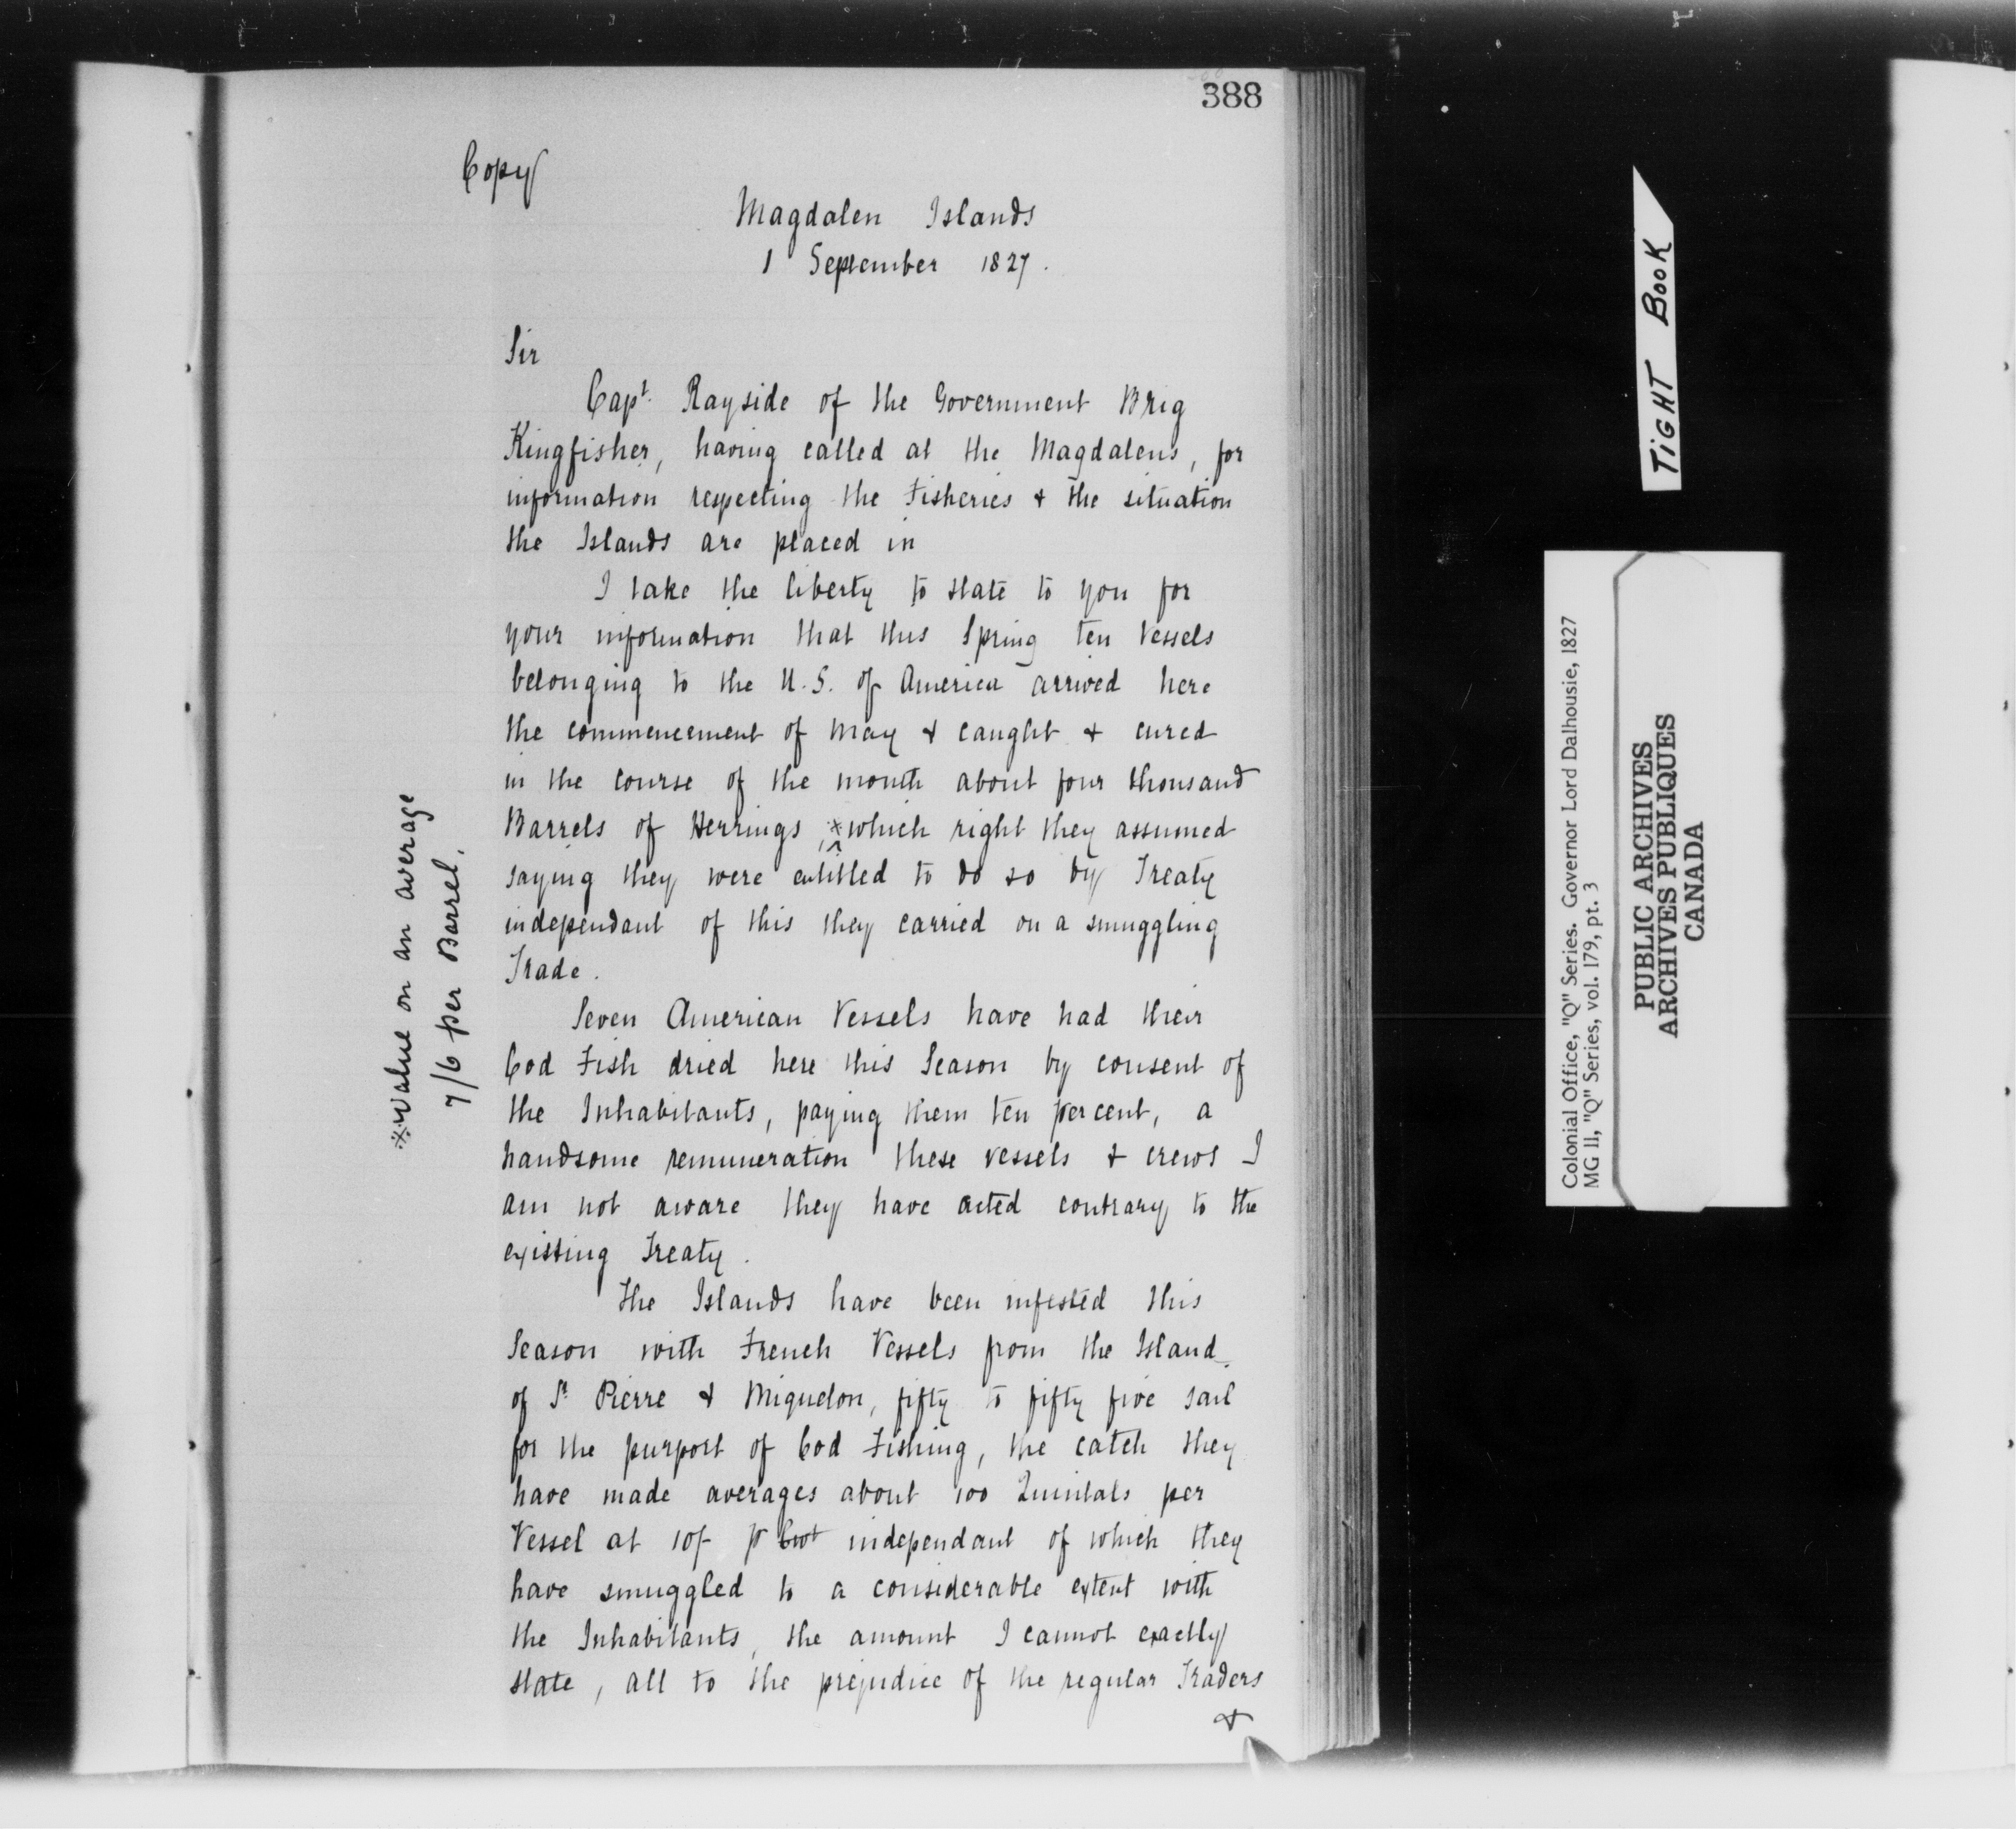 388
Copy
Magdalen Islands
1 September 1827.
Sir
Capt. Rayside of the Government Brig
Kingfisher, having called at the Magdalens, for
information respecting the Fisheries & the situation
the Islands are placed in
I take the liberty to state to you for
your information that this Spring ten Vessels
belonging to the U.S. of America arrived here
the commencement of May & caught & cured
in the course of the month about four thousand
Barrels of Herrings, * which right they assumed
saying they were entitled to do so by Treaty
independant of this they carried on a smuggling
Trade.
Seven American Vessels have had their
Cod Fish dried here this Season by consent of
the Inhabitants, paying them ten per cent, a
handsome remuneration these vessels & crews I
am not aware they have acted contrary to the
existing Treaty.
The Islands have been infested this
Season with French Vessels from the Island
of St. Pierre & Miquelon, fifty to fifty five sail
for the purport of Cod Fishing, the catch they
have made averages about 100 Quintals per
Vessel at 10/- p Cwt independant of which they
have smuggled to a considerable extent with
the Inhabitants, the amount I cannot exactly
state, all to the prejudice of the regular Traders
&
* Value on an average
7/6 per Barrel.
TIGHT BOOK
Colonial Office, "Q" Series. Governor Lord Dalhousie, 1827
MG 11, "Q" Series, vol. 179, pt. 3
PUBLIC ARCHIVES
ARCHIVES PUBLIQUES
CANADA